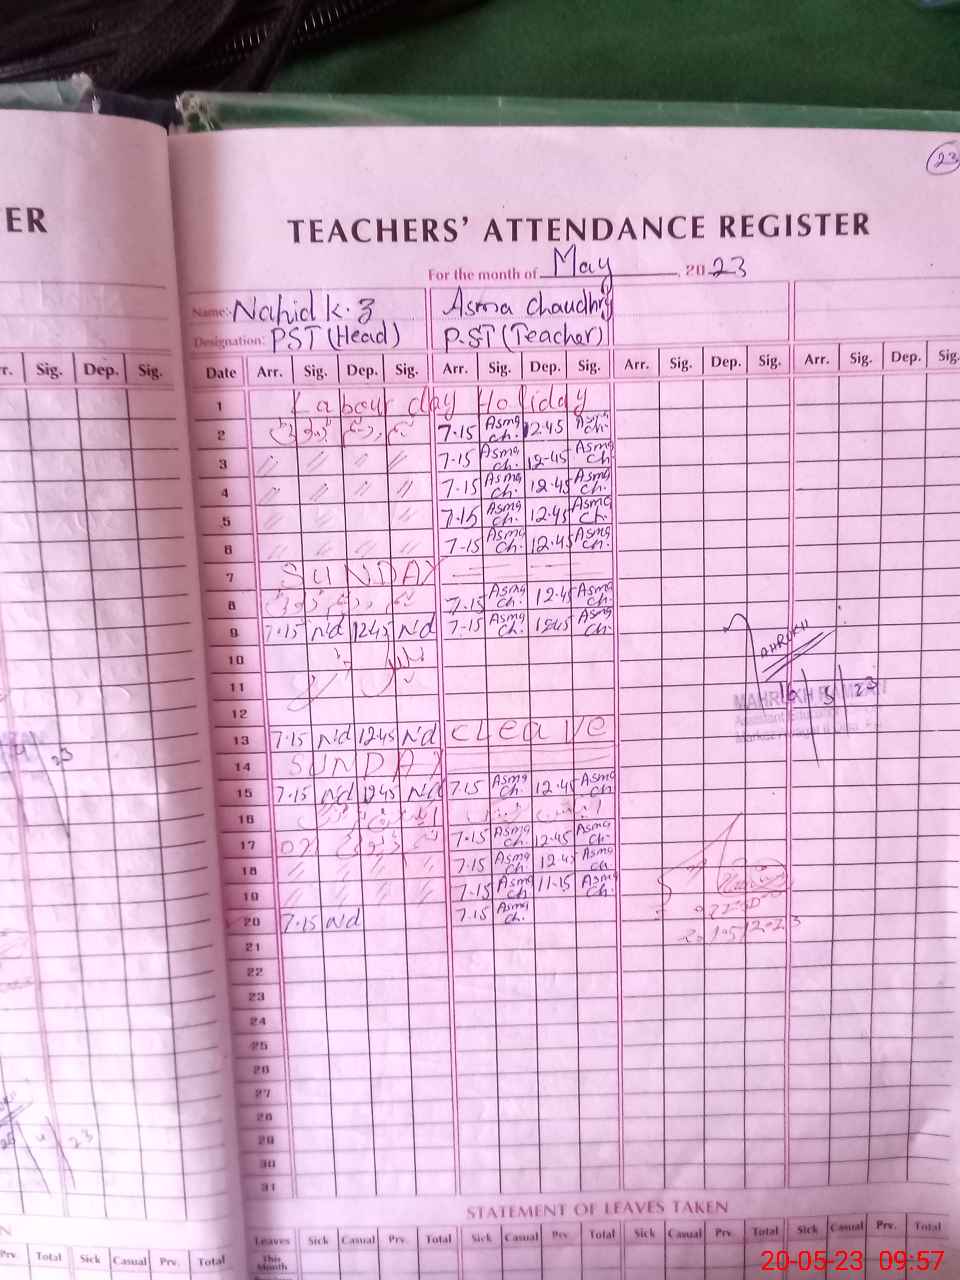 23
TER
TEACHERS' ATTENDANCE REGISTER
For the month of May, 2023
Name:- Nahid k.z Asma Chaudhry
Designation: PST (Head) P.ST (Teacher)
Sig. Dep. Sig. Date Arr. Sig. Dep. Sig. Arr. Sig. Dep. Sig. Arr. Sig. Dep. Sig. Arr. Sig. Dep. Sig.
1 Labour day Holiday
2 7.15 Asma ch. 12.45 Asma ch.
3 " " " " 7.15 Asma ch. 12-45 Asma ch
4 " " " " 7.15 Asma ch. 12.45 Asma ch.
5 " " " " 7.15 Asma ch. 12.45 Asma ch.
6 " " " " 7-15 Asma ch. 12.45 Asma ch.
7 SUNDAY
8 7.15 Asma ch. 12.45 Asma ch.
9 7.15 Nd 12.45 Nd 7-15 Asma ch. 12.45 Asma ch.
10
11
12
13 7.15 Nd 12.45 Nd C Leave
14 SUNDAY
15 7.15 Nd 12.45 Nd 7.15 Asma ch. 12.45 Asma ch
16
17 7.15 Asma ch. 12.45 Asma ch.
18 " " " " 7.15 Asma ch. 12.45 Asma ch
19 " " " " 7.15 Asma ch 11-15 Asma ch.
20 7.15 Nd 7.15 Asma ch.
21
22
23
24
25
26
27
28
29
30
31
MAHRUKH
STATEMENT OF LEAVES TAKEN
Prv. Total Sick Casual Prv. Total Leaves Sick Casual Prv. Total Sick Casual Prv. Total Sick Casual Prv. Total Sick Casual Prv. Total
This Month
20-05-23 09:57